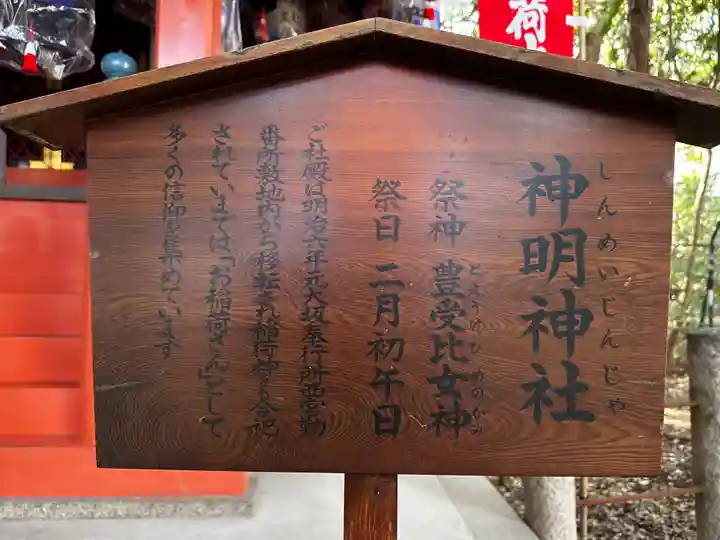 しんめいじんじゃ
神明神社
祭神 豊受比女神
とようけひめのかみ
祭日 二月初午日
ご社殿は明治六年元大坂奉行所西宮勤
番所敷地内から移転され稲荷神も合祀
されていまでは「お稲荷さん」として
多くの信仰を集めています
荷